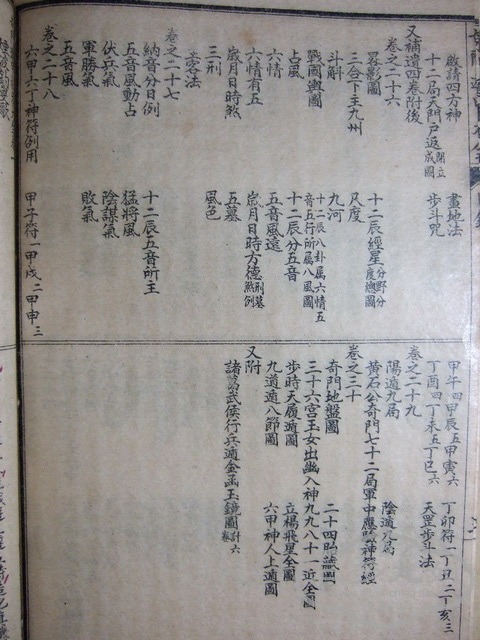 啟請四方神　畫地法
十二局天門戶返閉立成圖　步斗咒
又補遺四卷附後
卷之二十六
晷影圖　十二辰經星分野分度總圖
三台下主九州　尺度
斗斛　九河
戰國輿圖　十二辰八卦屬六情五音五行所屬八風圖
占風　十二辰分五音
六情　五音風遠
六情有五　歲月日時方德刑墓煞例
歲月日時煞　五墓
三刑　風色
主客法
卷之二十七
納音分日例　十二辰五音所主
五音風動占　猛將風
伏兵氣　陰謀氣
軍勝氣　敗氣
五音風
卷之二十八
六甲六丁神符例用　甲子符一甲戌二甲申三
甲午四甲辰五甲寅六　丁卯符一丁丑二丁亥三
丁酉四丁未五丁巳六　天罡步斗法
卷之二十九
陽遁九局　陰遁九局
黃石公奇門七十二局軍中應神符經
卷之三十
奇門地盤圖　二十四
三十六宮玉女出幽入神九九八十一近全圖
步時天履遁圖　立楊飛星全圖
九道遁八節圖　六甲神人上遁圖
又附
諸葛武侯行兵遁金函玉鏡圖計六卷